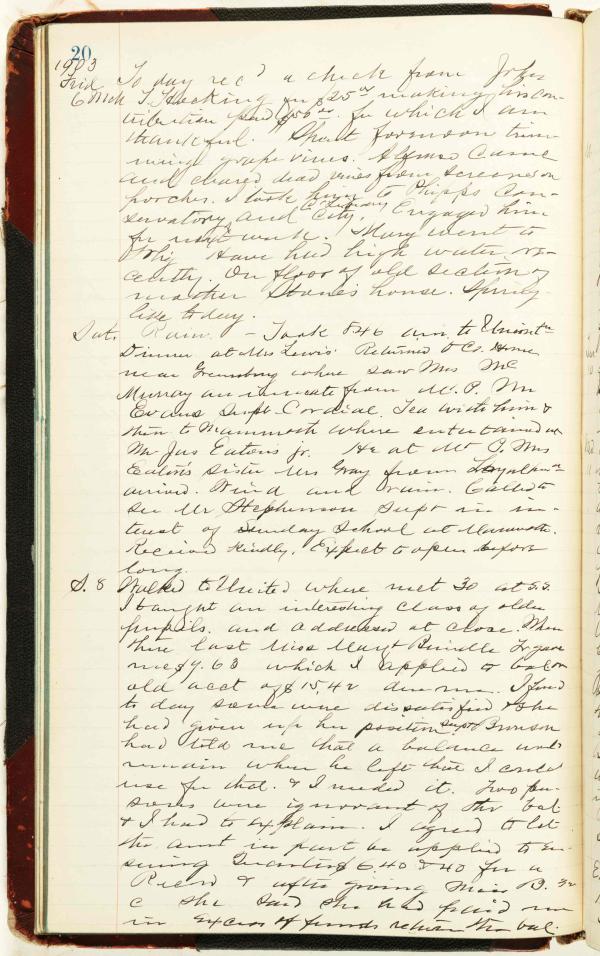 20
1903
Frid To day rec'd a check from John
6 Mch T. Hocking for $25 00 making his con-
tribution $50 00 for which I am
thankful. Spent forenoon trim-
ming grape vines. Came
and cleared dead vines from screens on
porches. I took him to Phipps Con-
servatory and City, Library Engaged him
for next week. Mary went to
Have had high water re-
cently. On floor of old section of
mother Stone's house. Spring-
like to day.
Sat. Rain. - Took 846 am. to
Dinner at Mrs Lewis' Returned to Co. Home
near Greensburg where saw Mrs Mc
Murray an inmate from Mt. P. Mr
Evans Supt. Cordial. Tea with him &
then to Mammoth where entertained at
Mr Jas Eatons jr. He at Mt P. Mrs
Eaton's sister Mrs Gray from
arrived. Wind and rain. Called to
see Mr Stephenson Supt in in-
terest of Sunday School at Mammoth.
Received kindly. Expect to open before
long.
S. 8 Walked to United where met 30 at S.S.
I taught an interesting class of older
pupils. and addressed at close. When
here last Miss Mary Brindle Tr gave
me $9.63 which I applied to bal on
old acct of $15,42 due me. I find
to day some were dissatisfied & she
had given up her position Supt Bronson
had told me that a balance would
remain when he left that I could
use for that. & I needed it. Two per-
sons were ignorant of the bal
& I had to explain. I agreed to let
the amt in part be applied to en-
suing Quarter $6.40 & 40 for a
Record & after giving Miss B. 32
c she said she had paid me
in excess of funds return the bal.